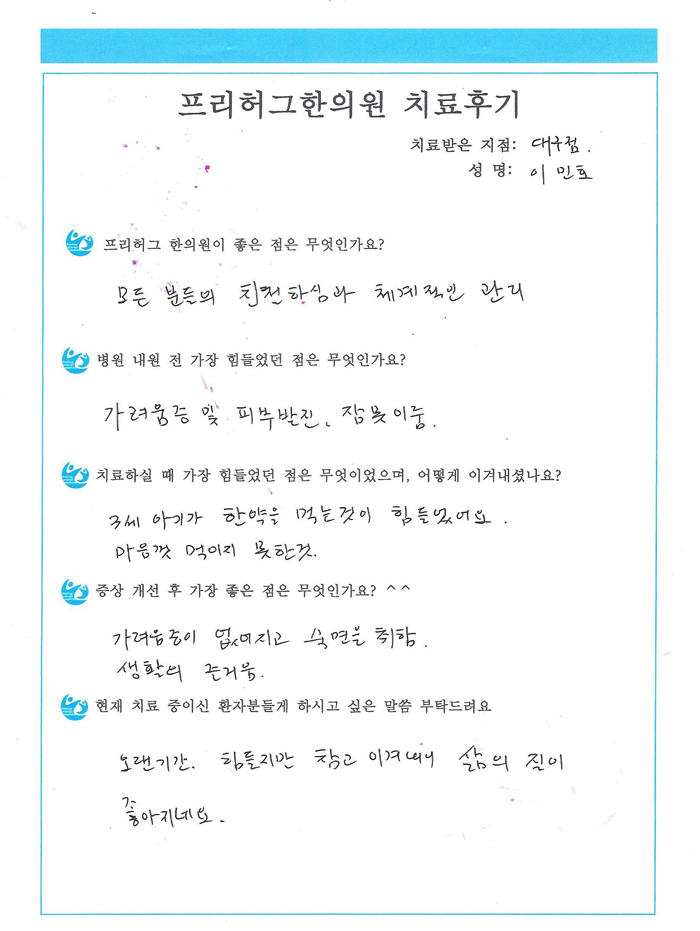 프리허그한의원 치료후기
치료받은 지점: 대구점.
성 명: 이민호
프리허그 한의원이 좋은 점은 무엇인가요?
모든 분들의 친절하심과 체계적인 관리
병원 내원 전 가장 힘들었던 점은 무엇인가요?
가려움증 및 피부발진, 잠못이룸.
치료하실 때 가장 힘들었던 점은 무엇이었으며, 어떻게 이겨내셨나요?
3세 아기가 한약을 먹는것이 힘들었어요.
마음껏 먹이지 못한것.
증상 개선 후 가장 좋은 점은 무엇인가요? ^^
가려움증이 없어지고 숙면을 취함.
생활의 즐거움.
현재 치료 중이신 환자분들게 하시고 싶은 말씀 부탁드려요
오랜기간. 힘들지만 참고 이겨내니 삶의 질이
좋아지네요.